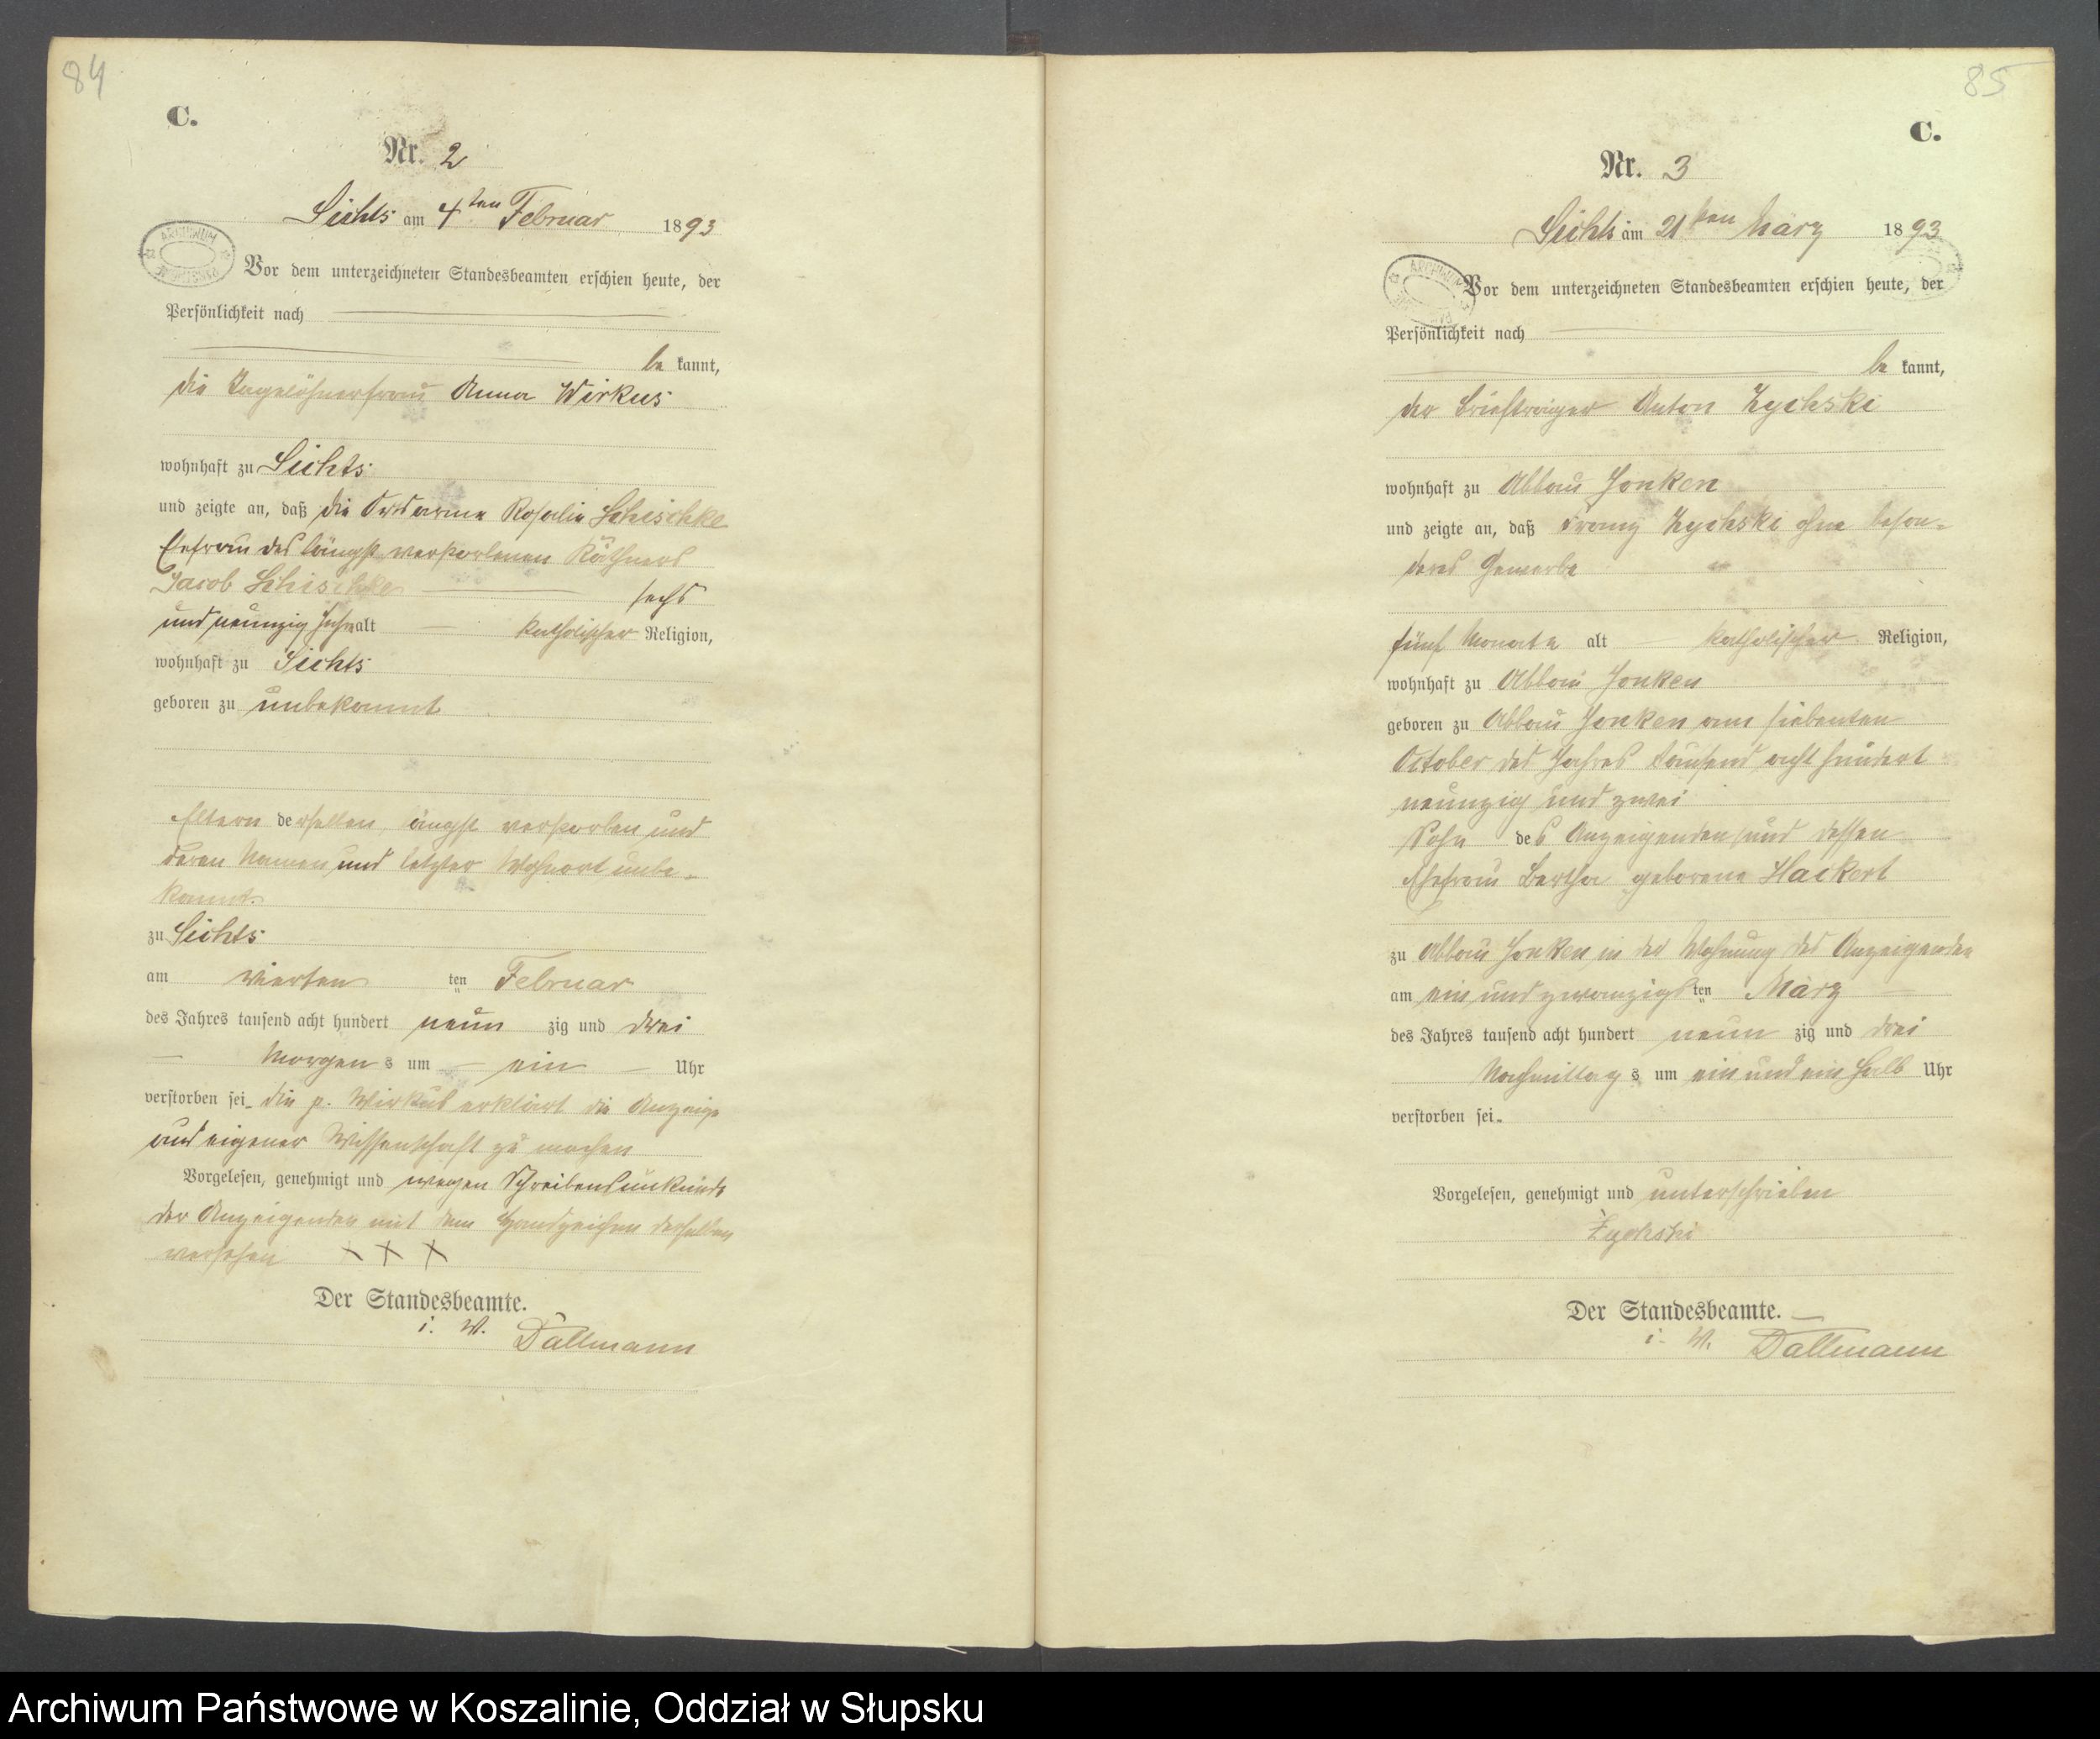 84
C.
Nr. 2
Lichts am 4ten Februar 1893
ARCHIWUM
Vor dem unterzeichneten Standesbeamten erschien heute, der
Persönlichkeit nach
be kannt,
die Tagelöhnerfrau Anna Wirkus
wohnhaft zu Lichts
und zeigte an, daß die Ortsarme Rosalie Schischke
Ehefrau des längst verstorbenen Käthners
Jacob Schischke sechs
und neunzig Jahre alt katholischer Religion,
wohnhaft zu Lichts
geboren zu unbekannt
Eltern derselben, längst verstorben und
deren Namen und letzter Wohnort unbe-
kannt.
zu Lichts
am vierten ten Februar
des Jahres tausend acht hundert neun zig und drei
Morgens um ein Uhr
verstorben sei. die p. Wirkus erklärt die Anzeige
aus eigener Wissenschaft zu machen
Vorgelesen, genehmigt und wegen Schreibensunkunde
der Anzeigenden mit dem Handzeichen derselben
versehen + + +
Der Standesbeamte.
i. V. Dallmann
85
C.
Nr. 3
Lichts am 21ten März 1893
ARCHIWUM
Vor dem unterzeichneten Standesbeamten erschien heute, der
Persönlichkeit nach
be kannt,
der Briefträger Anton Zychski
wohnhaft zu Abbau Jonken
und zeigte an, daß Franz Zychski ohne beson-
deres Gewerbe
fünf Monate alt katholischer Religion,
wohnhaft zu Abbau Jonken
geboren zu Abbau Jonken am siebenten
October des Jahres tausend acht hundert
neunzig und zwei
Sohn des Anzeigenden und dessen
Ehefrau Bertha geborene Hackert
zu Abbau Jonken in der Wohnung des Anzeigenden
am ein und zwanzigsten März
des Jahres tausend acht hundert neun zig und drei
Nachmittags um ein und ein halb Uhr
verstorben sei.
Vorgelesen, genehmigt und unterschrieben
Żychski
Der Standesbeamte.
i. V. Dallmann
Archiwum Państwowe w Koszalinie, Oddział w Słupsku